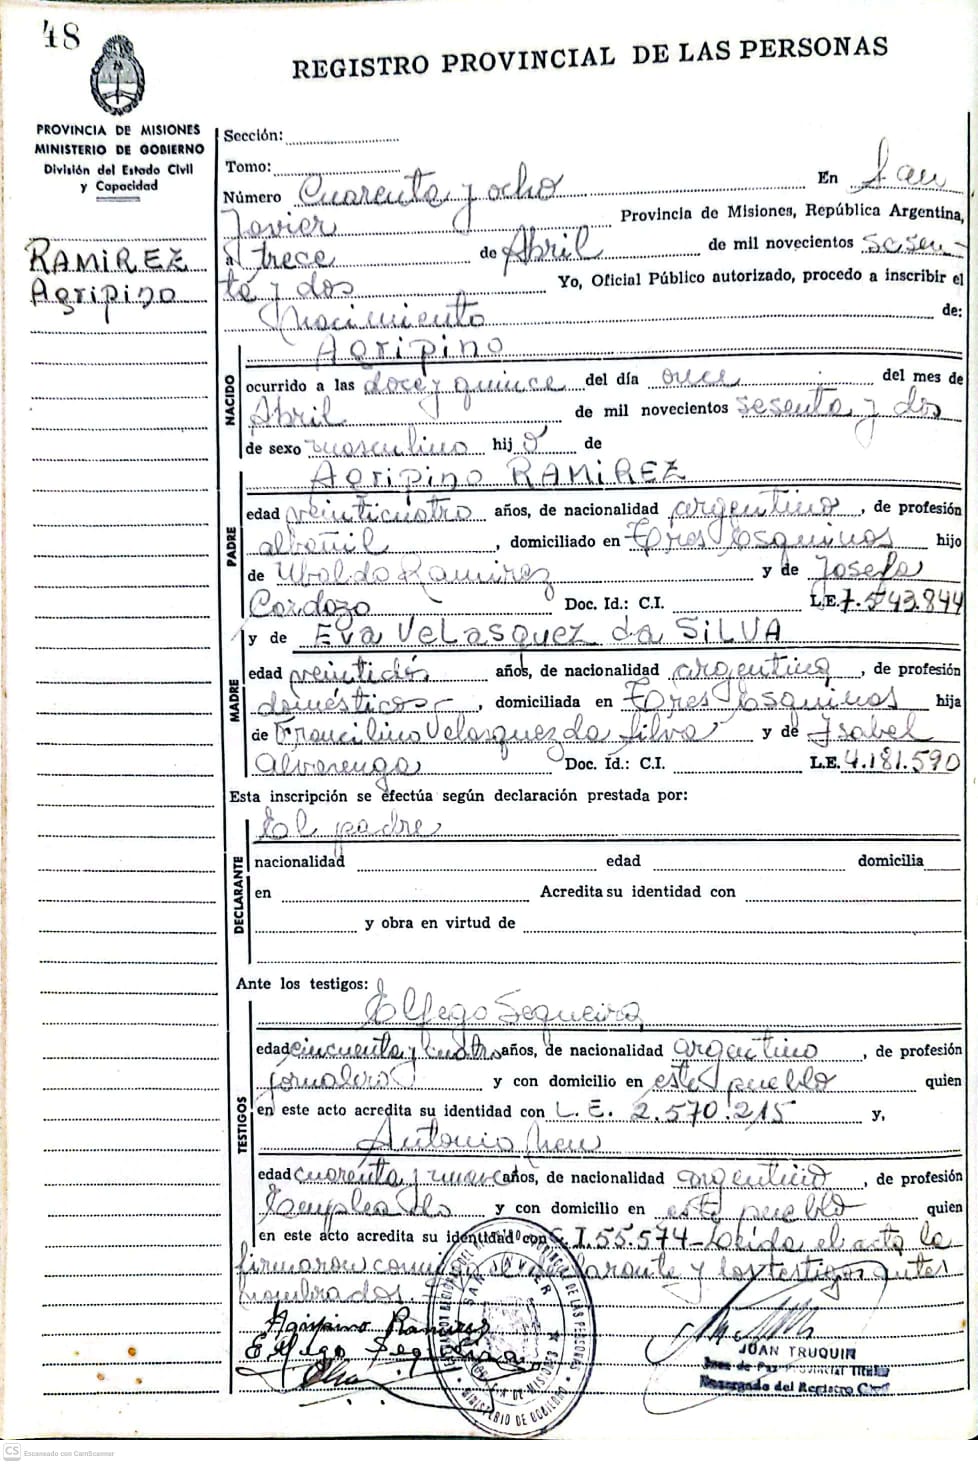 48
REGISTRO PROVINCIAL DE LAS PERSONAS
PROVINCIA DE MISIONES
MINISTERIO DE GOBIERNO
División del Estado Civil
y Capacidad
RAMIREZ
Agripino
Sección:
Tomo:
Número Cuarenta y ocho En San
Javier Provincia de Misiones, República Argentina,
a trece de Abril de mil novecientos sesen-
ta y dos Yo, Oficial Público autorizado, procedo a inscribir el
Nacimiento de:
NACIDO
Agripino
ocurrido a las doce y quince del día once del mes de
Abril de mil novecientos sesenta y dos
de sexo masculino hijo de
PADRE
Agripino RAMIREZ
edad veinticuatro años, de nacionalidad argentino, de profesión
albañil, domiciliado en Tres Esquinas hijo
de Ubaldo Ramirez y de Josefa
Cardozo Doc. Id.: C.I. L.E. 7.543.844
y de EVA VELASQUEZ da SILVA
MADRE
edad veintidós años, de nacionalidad argentina, de profesión
domésticas, domiciliada en Tres Esquinas hija
de Francilino Velasquez da Silva y de Isabel
Alvarenga Doc. Id.: C.I. L.E. 4.181.590
Esta inscripción se efectúa según declaración prestada por:
DECLARANTE
El padre
nacionalidad edad domicilia
en Acredita su identidad con
y obra en virtud de
Ante los testigos:
TESTIGOS
Elfego Sequeira
edad cincuenta y cuatro años, de nacionalidad argentino, de profesión
jornalero y con domicilio en este pueblo quien
en este acto acredita su identidad con L. E. 2.570.215 y,
Antonio
edad cuarenta y nueve años, de nacionalidad argentino, de profesión
Empleado y con domicilio en este pueblo quien
en este acto acredita su identidad con C. I. 55.574- Leida el acta la
firmaron conmigo el declarante y los testigos antes
nombrados.
Agripino Ramirez
Elfego Sequeira
SAN JAVIER
MINISTERIO DE GOBIERNO
JUAN TRUQUIN
Juez de Paz
Encargado del Registro Civil
CS Escaneado con CamScanner